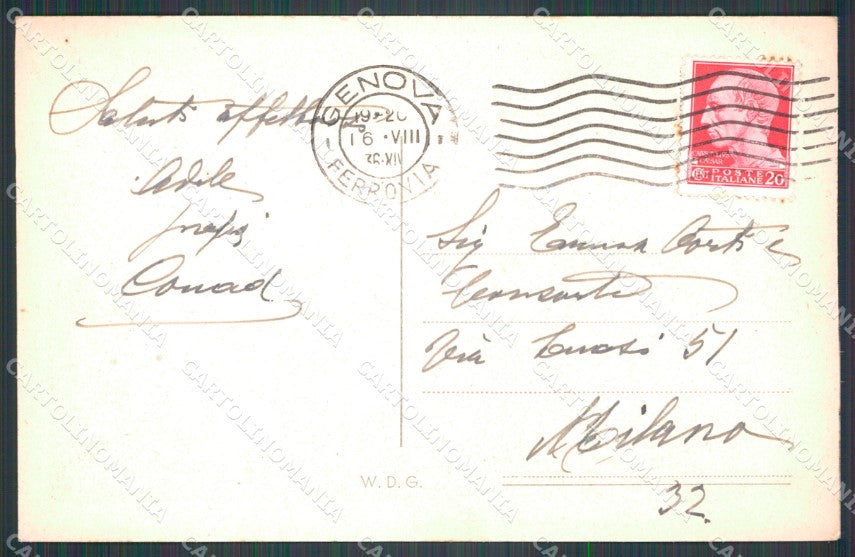 Saluti affettuosi
Adele
Conrad
GENOVA
FERROVIA
19-20
16 · VIII
36·XIV
POSTE
ITALIANE 20
Sig Emma Corti e
Consorte
Via 51
Milano
32.
W. D. G.
CARTOLINOMANIA